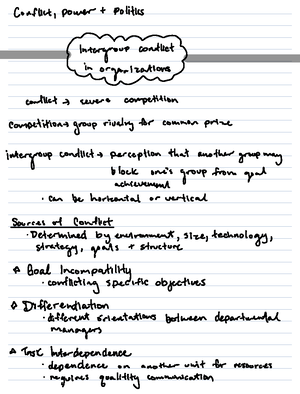 Conflict, power + politics
Intergroup conflict
in organizations
conflict → severe competition
Competition → group rivalry for common prize
intergroup conflict → perception that another group may
block one's group from goal
achievement
· can be horizontal or vertical
Sources of Conflict
· Determined by environment, size, technology,
strategy, goals + structure
Goal Incompatibility
· conflicting specific objectives
Differentiation
· different orientations between departmental
managers
Task Interdependence
· dependence on another unit for resources
· requires communication